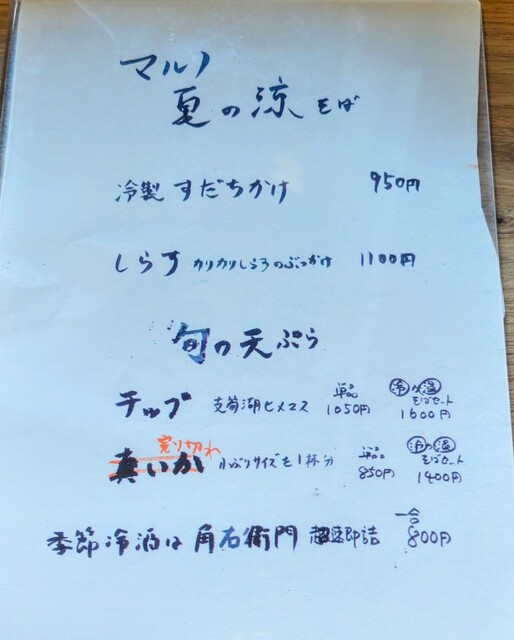 マルノ
夏の涼そば
冷製 すだちかけ 950円
しらす カリカリしらすのぶっかけ 1100円
旬の天ぷら
チップ 支笏湖ヒメマス 単品 1050円 冷or温 そばセット 1600円
売り切れ
真いか 小ぶりサイズを1杯分 単品 850円 冷or温 そばセット 1400円
季節冷酒は 角右衛門 超速即詰 一合 800円